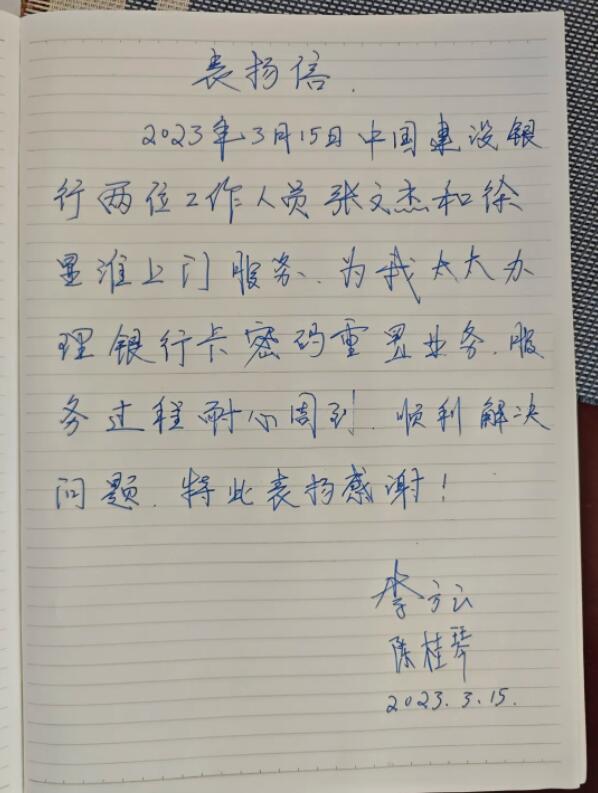 表扬信.
2023年3月15日中国建设银
行两位工作人员张文杰和徐
显淮上门服务.为我太太办
理银行卡密码重置业务.服
务过程耐心周到.顺利解决
问题.特此表扬感谢!
李方云
陈桂琴
2023.3.15.